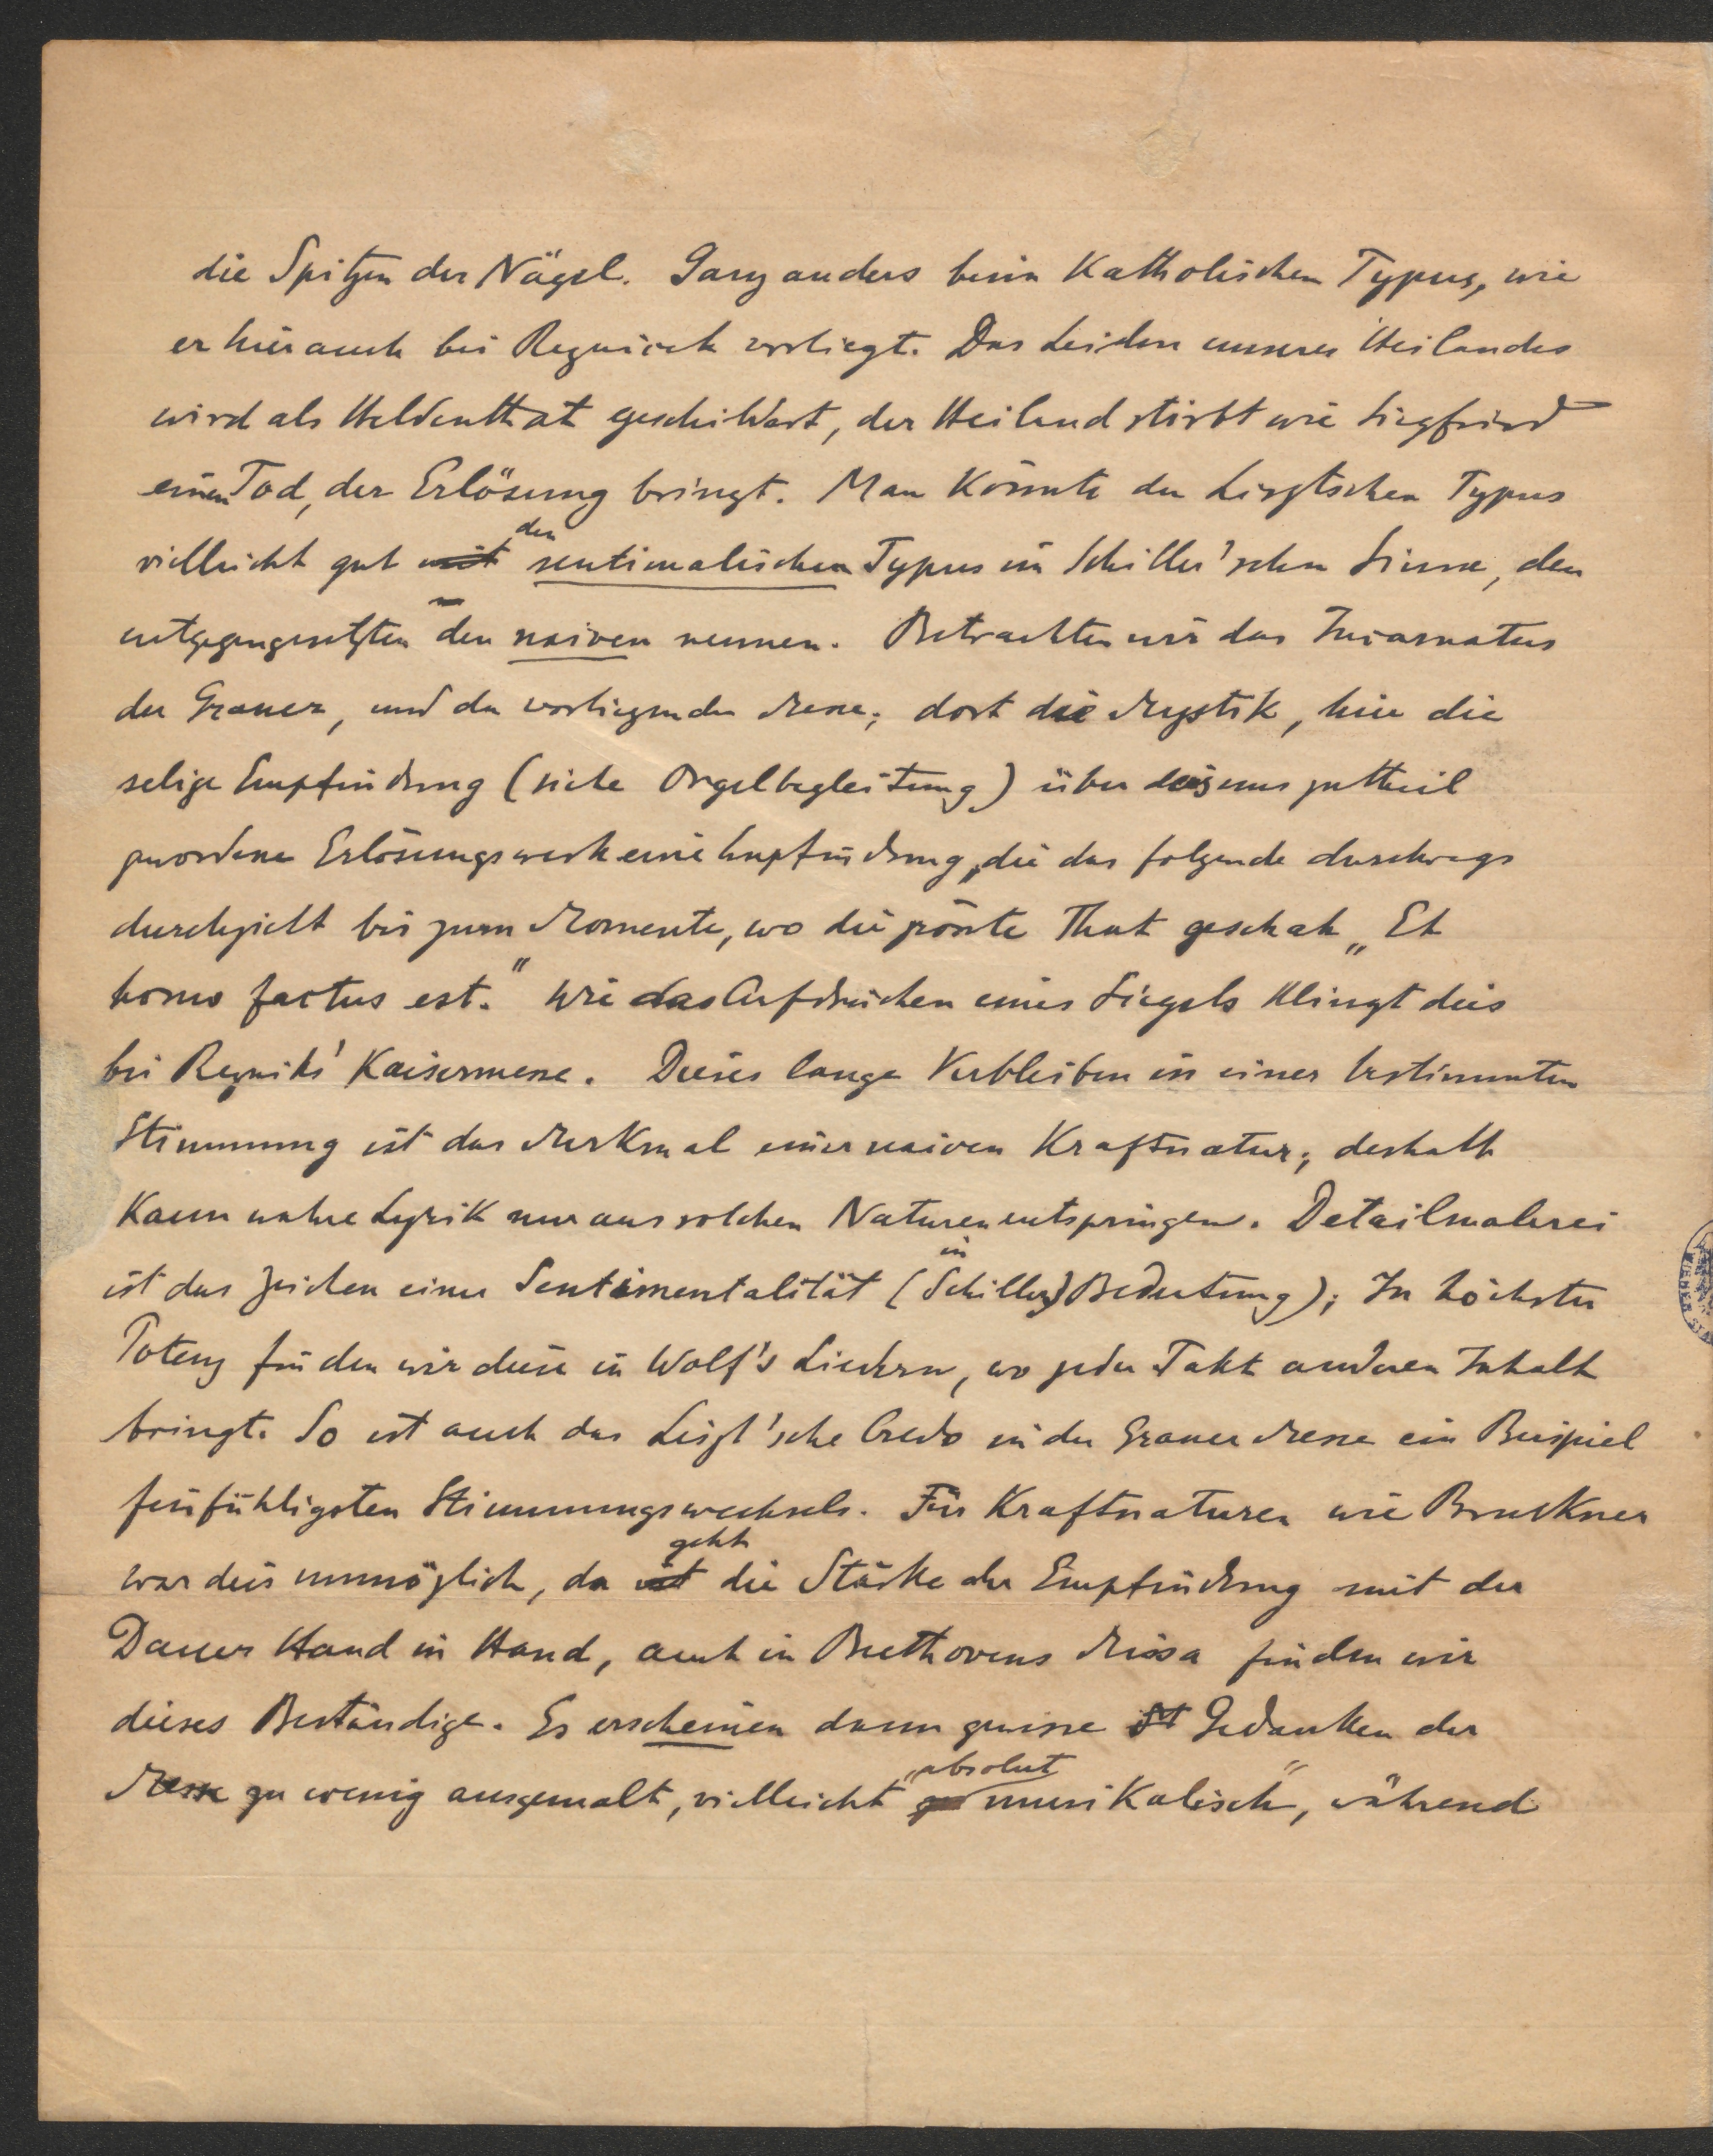 die Spitzen der Nägel. Ganz anders beim Katholischen Typus, wie
er hier auch bei Reznicek vorliegt. Das Leiden unseres Heilandes
wird als Heldenthat geschildert, der Heiland stirbt wie Siegfried
einen Tod, der Erlösung bringt. Man Könnte den Lisztschen Typus
vielleicht gut mit den sentimalischen Typus im Schiller'schen Sinne, den
entgegengesetzten den naiven nennen. Betrachten wir das Incarnatus
der Graner, und der vorliegenden Messe; dort die Mystik, hier die
selige Empfindung (siehe Orgelbegleitung) über das uns zutheil
gewordene Erlösungswerk eine Empfindung, die das folgende durchwegs
durchzieht bis zum Momente, wo die grösste That geschah „Et
homo factus est." Wie das Aufdrücken eines Siegels Klingt dies
bei Rezniks' Kaisermesse. Dieses lange Verbleiben in einer bestimmten
Stimmung ist das MerKmal einer naiven Kraftnatur; deshalb
Kann wahre LyriK nur aus solchen Naturen entspringen. Detailmalerei
ist das Zeichen einer Sentimentalität (in Schillers Bedeutung); In höchster
Potenz finden wir diese in Wolf's Liedern, wo jeder Takt anderen Inhalt
bringt. So ist auch das Liszt'sche Credo in der Graner Messe ein Beispiel
feinfühligsten Stimmungswechsels. Für Kraftnaturen wie BrucKner
war dies unmöglich, da ist geht die Stärke der Empfindung mit der
Dauer Hand in Hand, auch in Beethovens Missa finden wir
dieses Beständige. Es erscheinen dann gewisse St Gedanken der
Messe zu wenig ausgemalt, vielleicht „absolut musiKalisch", während